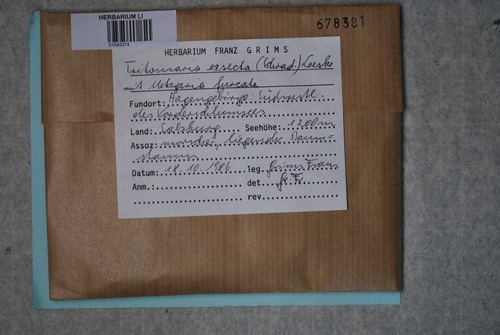 HERBARIUM LI
678381
HERBARIUM FRANZ GRIMS
Tritomaria exsecta (Schrad.) Loeske
m. Metzgeria furcata
Fundort: Hagengebirge: Südwestl.
des Vorderschlumsees
Land: Salzburg Seehöhe: 1200m
Assoz: morscher, liegender Baum-
stamm
Datum: 18.10.1986 leg. Grims Franz
Anm.: det. Gr. Fr.
rev.